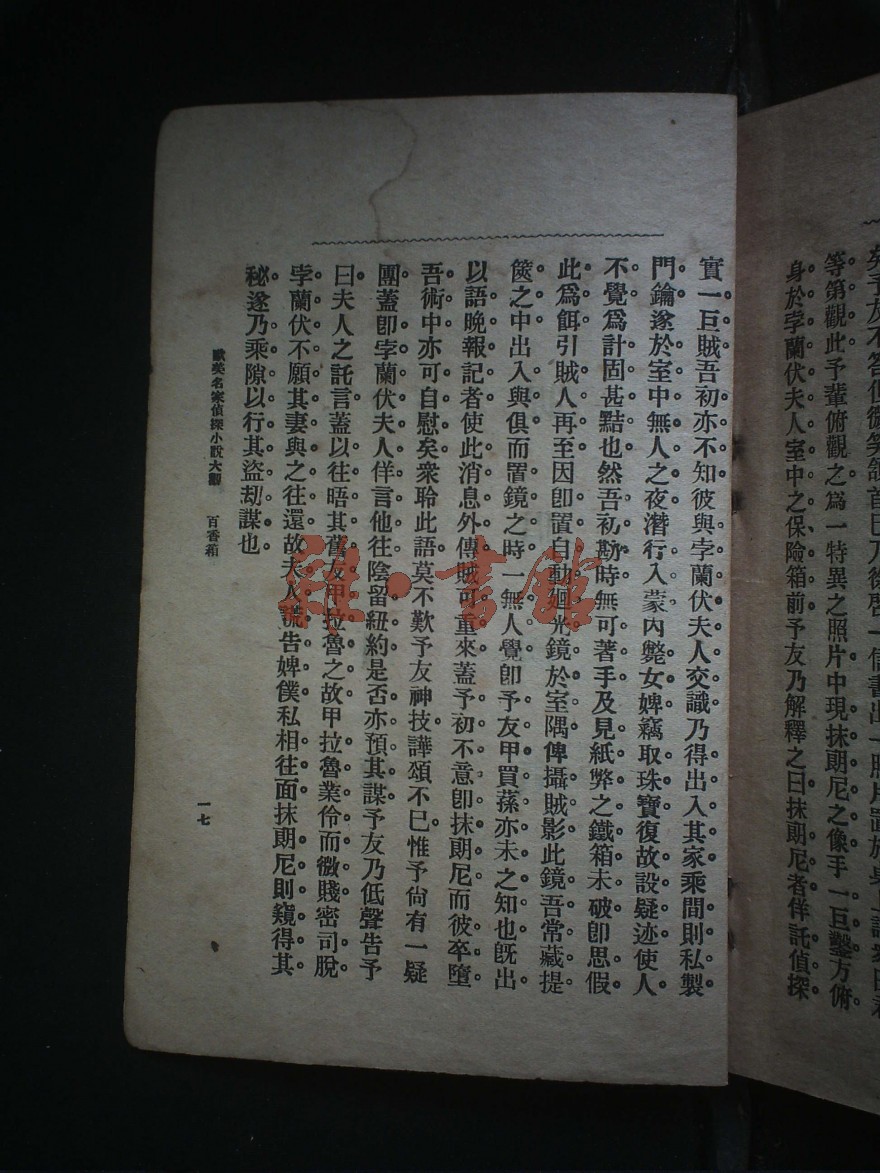 等第觀此予輩俯觀之爲一特異之照片中現抹朗尼之像手一巨鑿方俯
身於孛蘭伏夫人室中之保險箱前予友乃解釋之曰抹朗尼者佯託偵探
實一巨賊吾初亦不知彼與孛蘭伏夫人交識乃得出入其家乘間則私製
門鑰遂於室中無人之夜潛行入蒙內斃女婢竊取珠寶復故設疑迹使人
不覺爲計固甚黠也然吾初勘時無可著手及見紙弊之鐵箱未破卽思假
此爲餌引賊人再至因卽置自動廻光鏡於室隅俾攝賊影此鏡吾常藏提
篋之中出入與俱而置鏡之時一無人覺卽予友甲買蓀亦未之知也旣出
以語晚報記者使此消息外傳賊可重來蓋予初不意卽抹朗尼而彼卒墮
吾術中亦可自慰矣衆聆此語莫不歎予友神技譁頌不已惟予尙有一疑
團蓋卽孛蘭伏夫人佯言他往陰留紐約是否亦預其謀予友乃低聲告予
曰夫人之託言蓋以往晤其舊友甲拉魯之故甲拉魯業伶而微賤密司脫
孛蘭伏不願其妻與之往還故夫人謊告婢僕私相往面抹朗尼則窺得其
秘遂乃乘隙以行其盜劫謀也
歐美名家偵探小說大觀 百香箱
一七
雜·書館